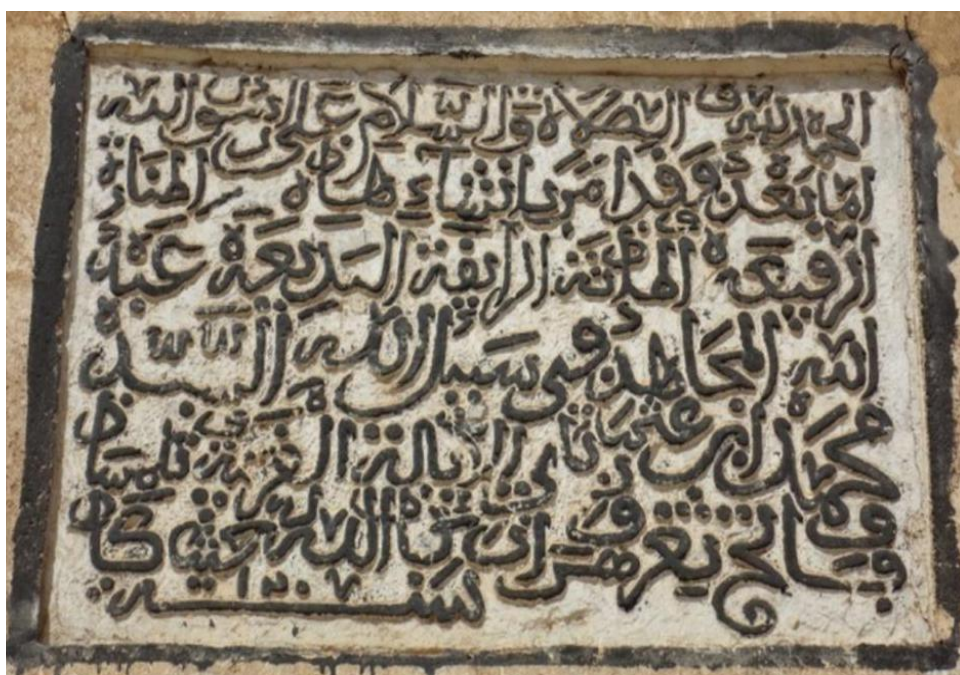 الحمد لله و الصلاة والسلام على رسول الله
اما بعد فقد امر بانشاء هاذه المنارة
الرفيعة الرايقة البديعة عبد
الله المجاهد في سبيل الله السيد
محمد ابن عثمان باي الايالة الغربية تلمسان
فاتح ثغر وهران الله بحيث كان
سنة ١٢٠٧